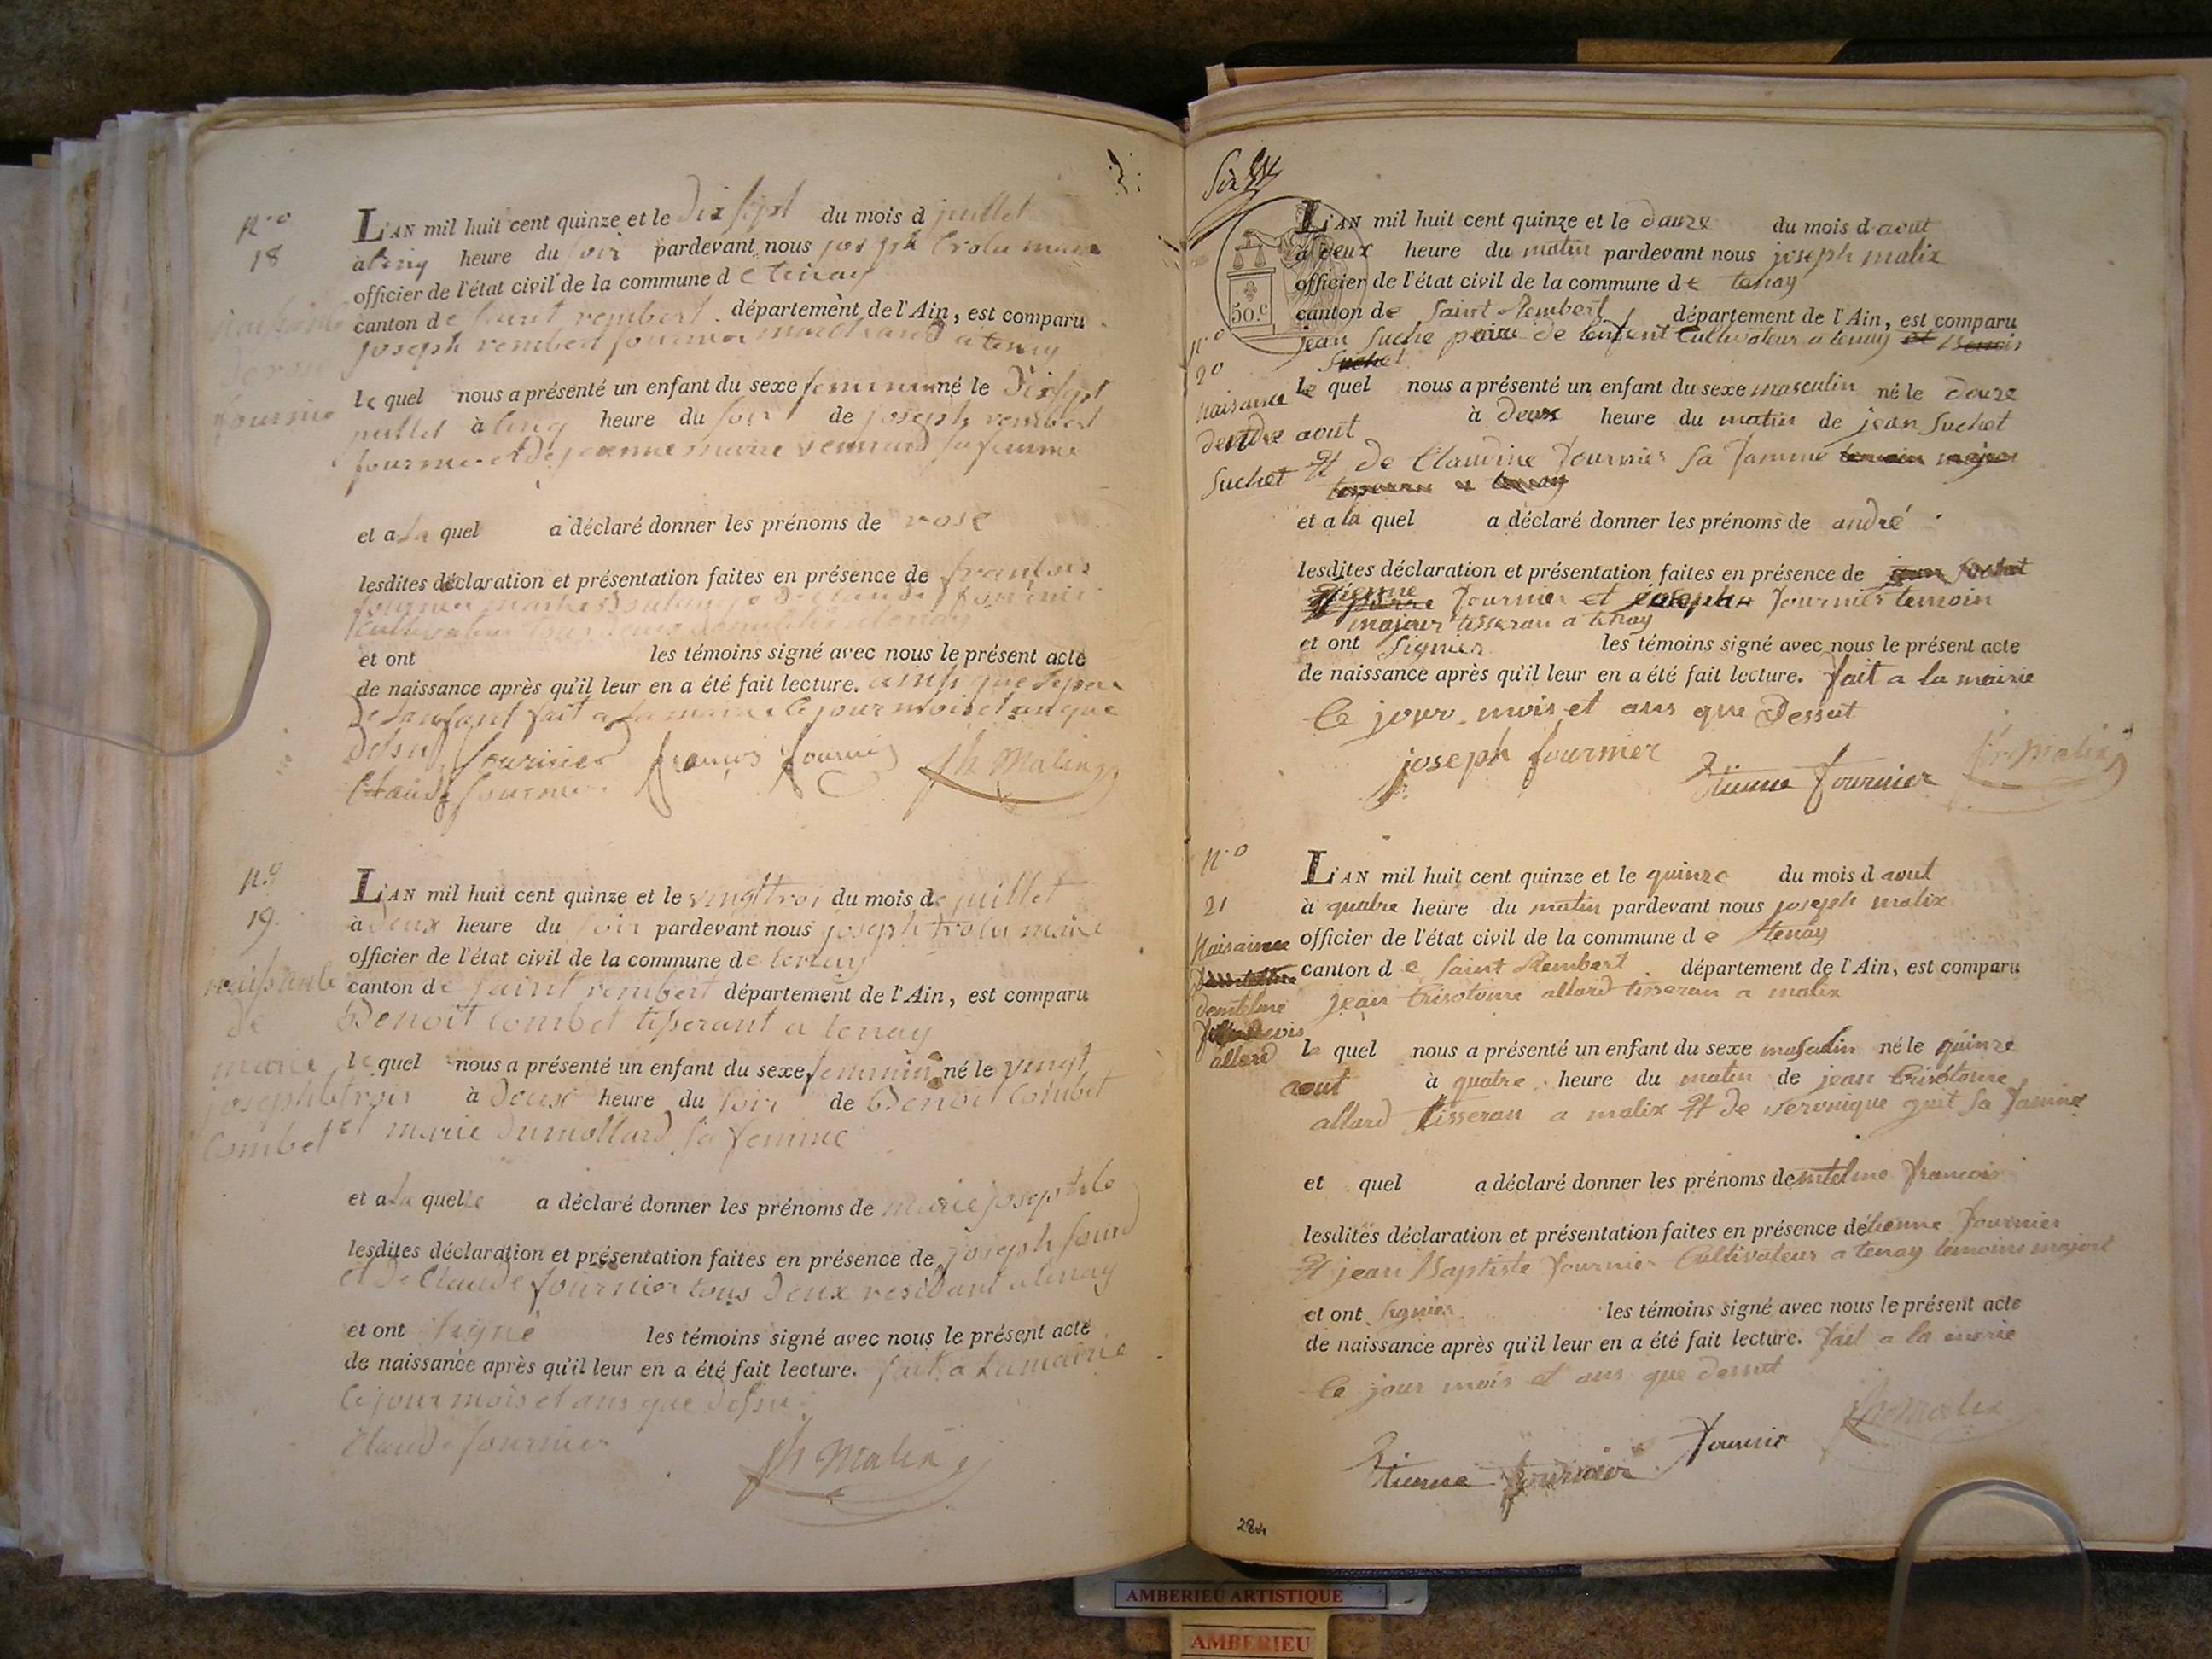 n.o
18
L'AN mil huit cent quinze et le dix sept du mois d juillet
à cinq heure du soir pardevant nous joseph trolu maire
officier de l'état civil de la commune de tenay
canton de saint rembert département de l'Ain, est comparu
joseph rembert fournier marchand a tenay
fournier
le quel nous a présenté un enfant du sexe feminin né le dix sept
juillet à cinq heure du soir de joseph rembert
fournier et de jeanne marie sa femme
et a la quel a déclaré donner les prénoms de rose
lesdites déclaration et présentation faites en présence de francois
fournier et de claude fournier
cultivateur tous deux a tenay
et ont les témoins signé avec nous le présent acte
de naissance après qu'il leur en a été fait lecture. ainsi que le pere
de lanfant fait a la mairie le jour mois et an que
desu fournier françois fournier jh Malix
Claude fournier
n.o
19.
naissance
de
marie
josephte
Combet
L'AN mil huit cent quinze et le vingt troi du mois de juillet
à deux heure du soir pardevant nous joseph trolu maire
officier de l'état civil de la commune de tenay
canton de saint rembert département de l'Ain, est comparu
Benoit Combet tiserant a tenay
le quel nous a présenté un enfant du sexe feminin né le vingt
trois à deux heure du soir de Benoit Combet
et marie dumollard sa femme
et a la quelle a déclaré donner les prénoms de marie josephte
lesdites déclaration et présentation faites en présence de joseph
et de Claude fournier tous deux residant a tenay
et ont signé les témoins signé avec nous le présent acte
de naissance après qu'il leur en a été fait lecture. fait a la mairie
le jour mois et ans que desu
Claude fournier
jh Malix
50.c
n.o
20
naisance
dendre
Suchet
L'AN mil huit cent quinze et le douze du mois d aout
à deux heure du matin pardevant nous joseph malix
officier de l'état civil de la commune de tenay
canton de Saint Rembert département de l'Ain, est comparu
jean Suche paire de lenfent Cultivateur a tenay et Benois
Suchet
le quel nous a présenté un enfant du sexe masculin né le douze
aout à deux heure du matin de jean Suchet
Et de Claudine fournier sa famme temoin major
tisseran a tenay
et a la quel a déclaré donner les prénoms de andré
lesdites déclaration et présentation faites en présence de jean Suchet
Etienne
Et pierre fournier et joseph fournier temoin
majeur tisseran a tenay
et ont signier les témoins signé avec nous le présent acte
de naissance après qu'il leur en a été fait lecture. fait a la mairie
le jour mois et ans que Dessut
joseph fournier
Etienne fournier
jh Malix
n.o
21
Naisainse
dentelme
francois
allard
L'AN mil huit cent quinze et le quinze du mois d aout
à quatre heure du matin pardevant nous joseph malix
officier de l'état civil de la commune de tenay
canton de Saint Rembert département de l'Ain, est comparu
jean Crisotome allard tisseran a malix
le quel nous a présenté un enfant du sexe masculin né le quinze
aout à quatre heure du matin de jean Crisotome
allard tisseran a malix Et de veronique guit sa famme
et quel a déclaré donner les prénoms dentelme francois
lesdites déclaration et présentation faites en présence détienne fournier
Et jean Baptiste fournier Cultivateur a tenay temoins majort
et ont signier les témoins signé avec nous le présent acte
de naissance après qu'il leur en a été fait lecture. fait a la merie
le jour mois et ans que dessut
Etienne fournier
fournier
jh Malix
284
AMBERIEU ARTISTIQUE
AMBERIEU